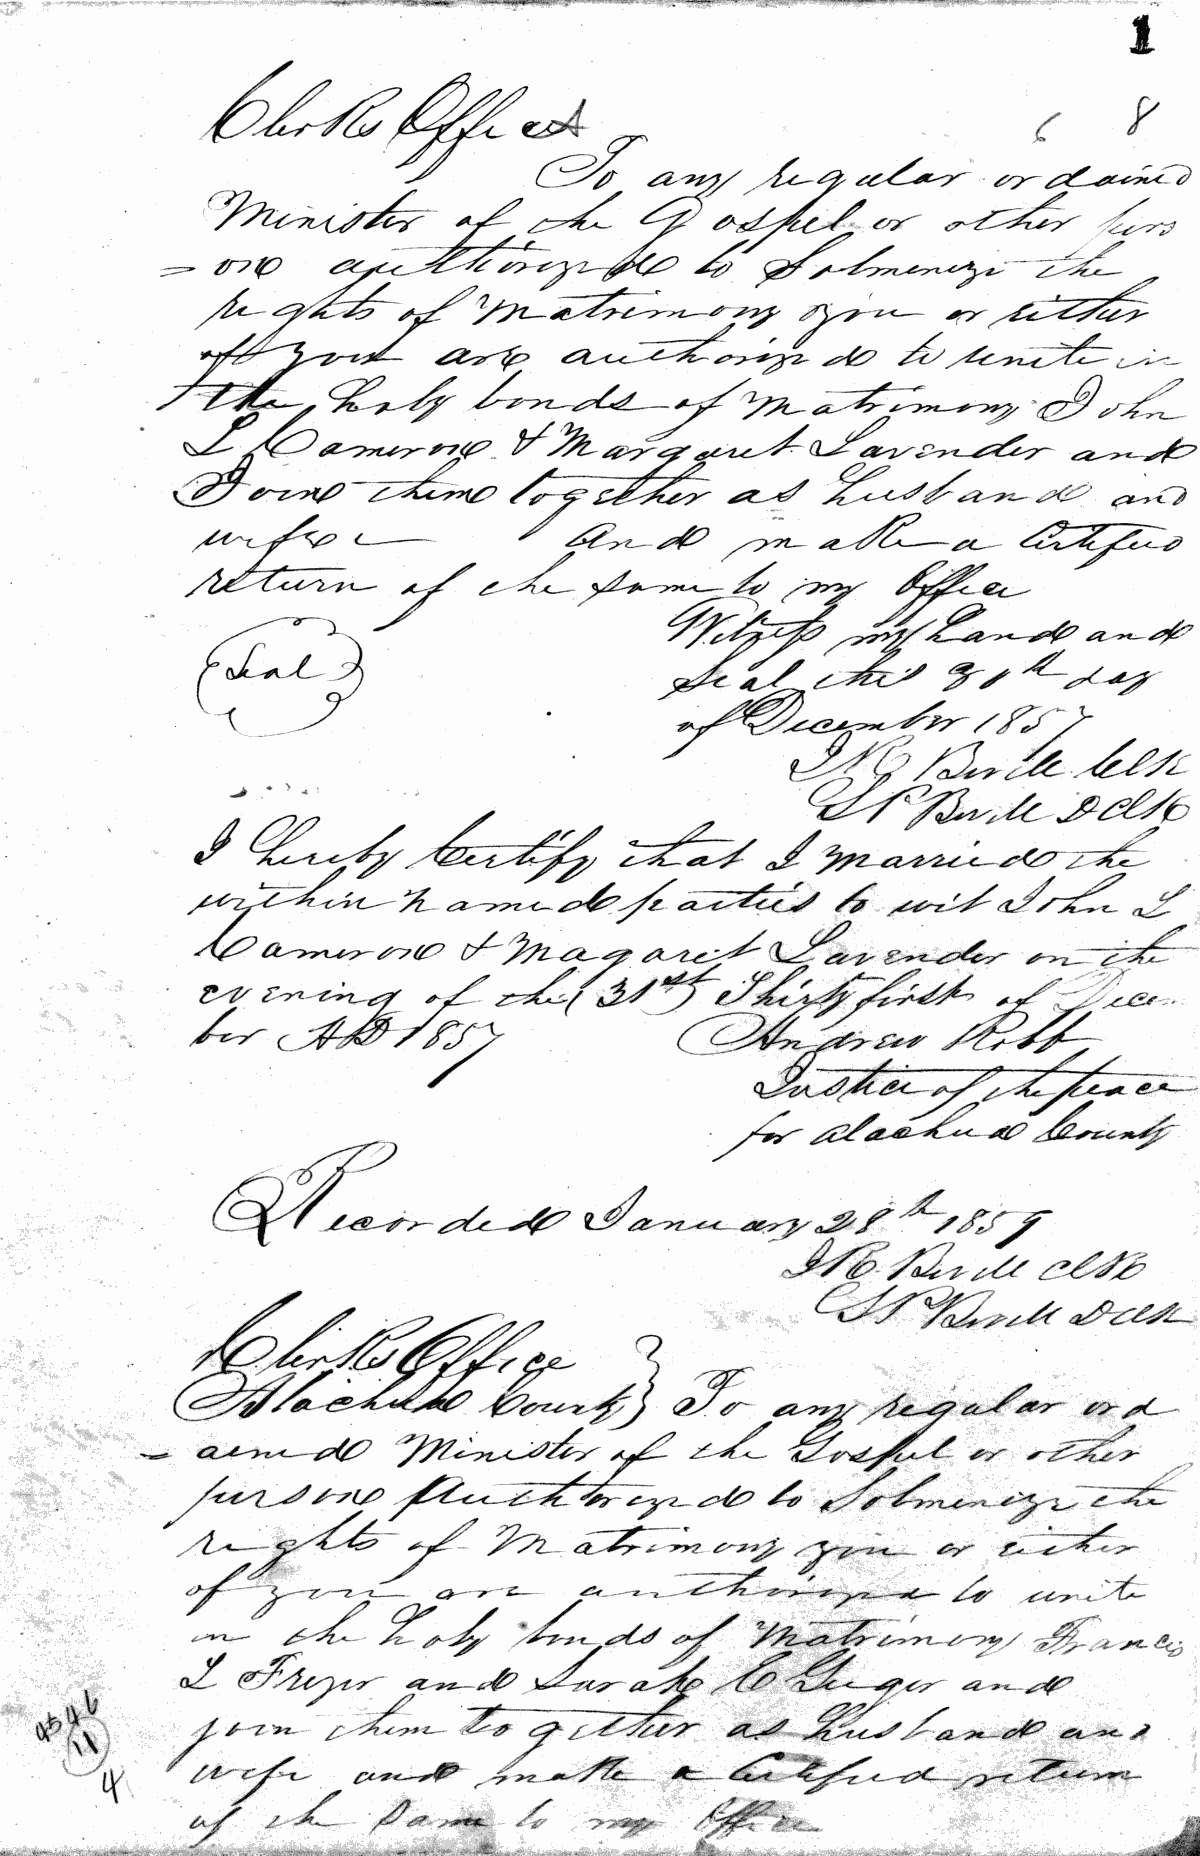 1
6 8
Clerks Office
To any regular ordained
Minister of the Gospel or other pers
= one authorized to Solmenize the
rights of Matrimony you or either
of you are authorized to unite in
the holy bonds of Matrimony John
L Camerone & Margaret Lavender and
Joine theme together as husband and
wife and make a Certified
return of the same to my Office
Witness my hand and
Seal this 30th day
Seal
of December 1857
J R Bevill Clk
S P Bevill D Clk
I hereby Certify that I Married the
within named parties to wit John L
Camerone & Magaret Lavender on the
evening of the (31st) Thirty first of Decem
ber AD 1857 Andrew Robb
Justice of the peace
for Alachua County
Recorded January 28th 1859
J R Bevill Clk
S P Bevill D Clk
Clerks Office
Alachua County } To any regular ord
= ained Minister of the Gospel or other
persone Authorized to Solmenize the
rights of Matrimony you or either
of you are authorized to unite
in the holy bonds of Matrimony Francis
L Fryer and Sarah E Geiger and
join them together as husband and
wife and make a Certified return
of the Same to my Office
4546
11
4